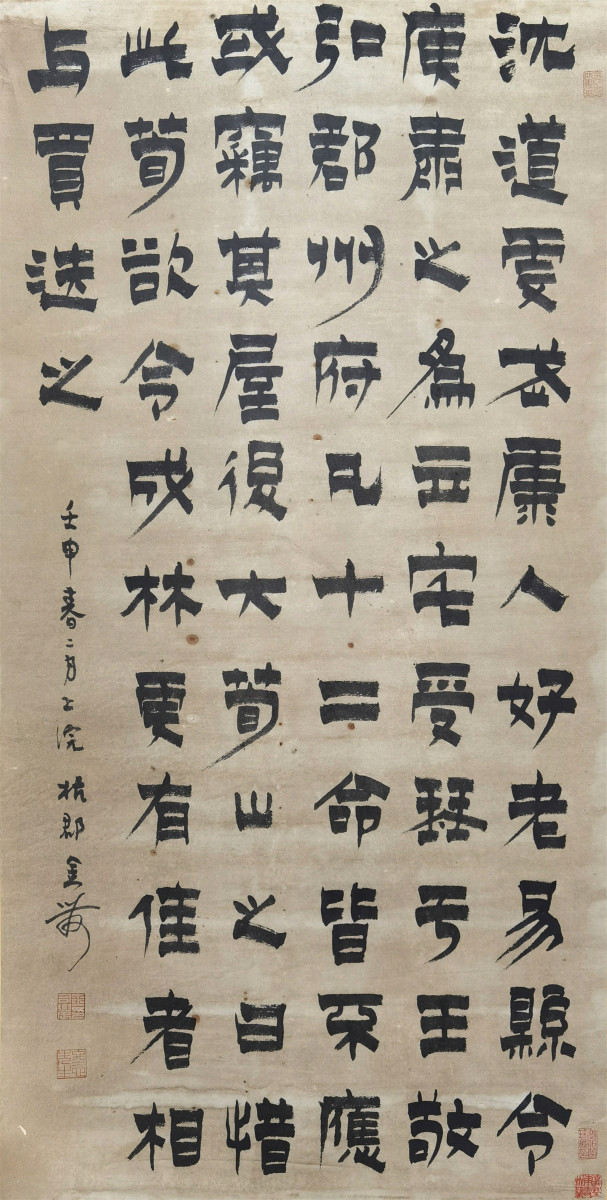 沈道虔武康人好老易縣令
庾肅之爲立宅受琴于王敬
弘郡州府凡十二命皆不應
或竊其屋後大筍止之曰惜
此筍欲令成林更有佳者相
与買送之
壬申春二月上浣 杭郡金農